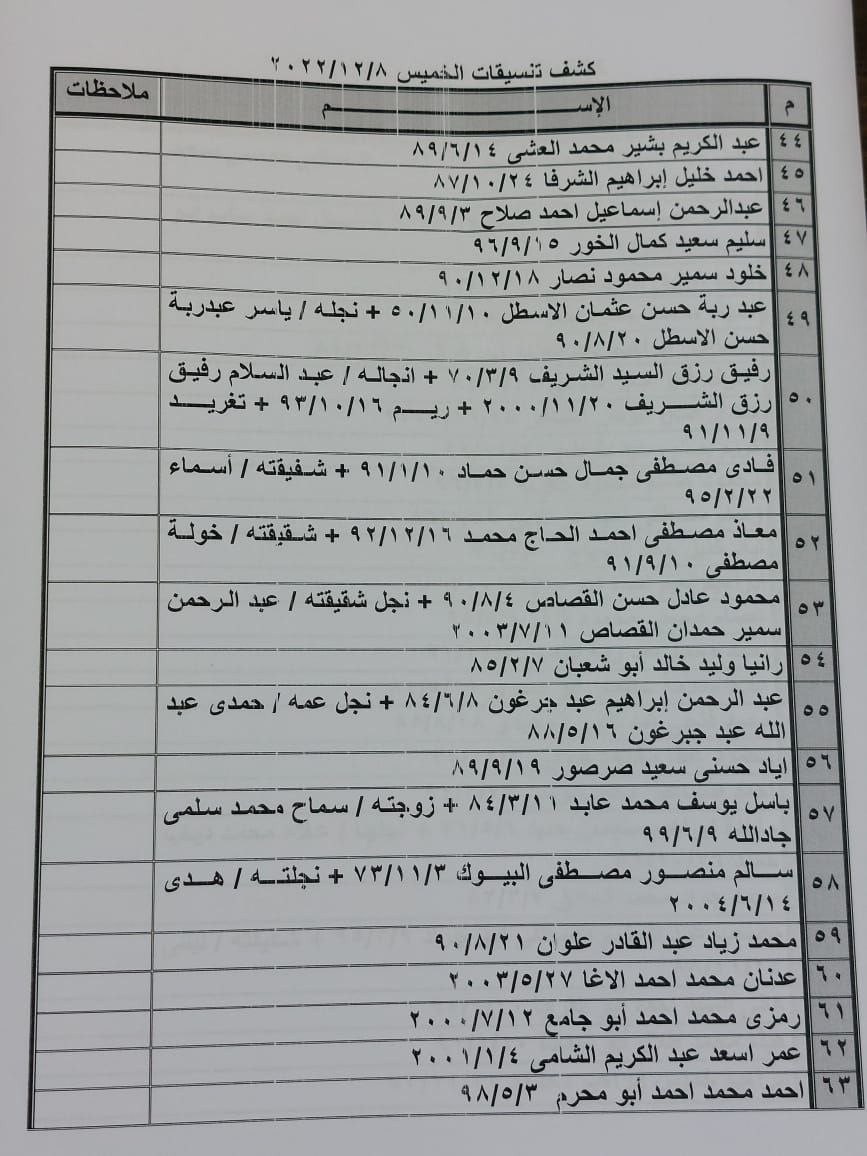 كشف تنسيقات الخميس ٢٠٢٢/١٢/٨
م الإســـــم ملاحظات
٤٤ عبد الكريم بشير محمد العشى ٨٩/٦/١٤
٤٥ احمد خليل إبراهيم الشرفا ٨٧/١٠/٢٤
٤٦ عبدالرحمن إسماعيل احمد صلاح ٨٩/٩/٣
٤٧ سليم سعيد كمال الخور ٩٦/٩/١٥
٤٨ خلود سمير محمود نصار ٩٠/١٢/١٨
٤٩ عبد ربة حسن عثمان الاسطل ٥٠/١١/١٠ + نجله / ياسر عبدربة
حسن الاسطل ٩٠/٨/٢٠
٥٠ رفيق رزق السيد الشريف ٧٠/٣/٩ + انجاله / عبد السلام رفيق
رزق الشريف ٢٠٠٠/١١/٢٠ + ريم ٩٣/١٠/١٦ + تغريد
٩١/١١/٩
٥١ فادى مصطفى جمال حسن حماد ٩١/١/١٠ + شقيقته / أسماء
٩٥/٢/٢٢
٥٢ معاذ مصطفى احمد الحاج محمد ٩٢/١٢/١٦ + شقيقته / خولة
مصطفى ٩١/٩/١٠
٥٣ محمود عادل حسن القصاص ٩٠/٨/٤ + نجل شقيقته / عبد الرحمن
سمير حمدان القصاص ٢٠٠٣/٧/١١
٥٤ رانيا وليد خالد أبو شعبان ٨٥/٢/٧
٥٥ عبد الرحمن إبراهيم عبد جبرغون ٨٤/٦/٨ + نجل عمه / حمدى عبد
الله عبد جبرغون ٨٨/٥/١٦
٥٦ اياد حسنى سعيد صرصور ٨٩/٩/١٩
٥٧ باسل يوسف محمد عابد ٨٤/٣/١١ + زوجته / سماح محمد سلمى
جادالله ٩٩/٦/٩
٥٨ سالم منصور مصطفى البيوك ٧٣/١١/٣ + نجلته / هدى
٢٠٠٤/٦/١٤
٥٩ محمد زياد عبد القادر علوان ٩٠/٨/٢١
٦٠ عدنان محمد احمد الاغا ٢٠٠٣/٥/٢٧
٦١ رمزى محمد احمد أبو جامع ٢٠٠٠/٧/١٢
٦٢ عمر اسعد عبد الكريم الشامى ٢٠٠١/١/٤
٦٣ احمد محمد احمد أبو محرم ٩٨/٥/٣